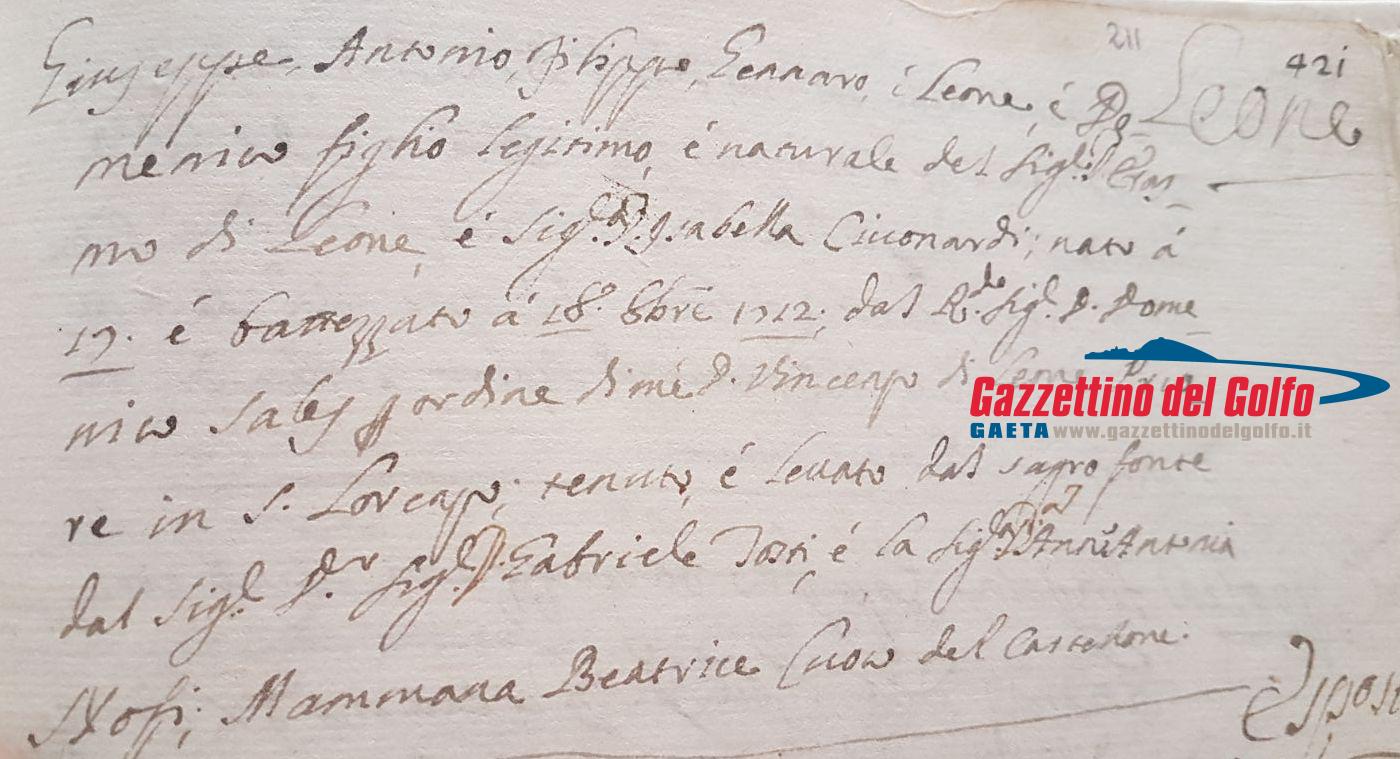 211
421
Leone
Giuseppe, Antonio, Filippo, Gennaro, é Leone, é Do
menico figlio legitimo, é naturale del Sigl. D. Eras
mo di Leone, é Sigl.ª D. Isabella Ciuonardi; nato á
17. é battezzato á 18. 8bre 1712; dal R.do Sigl. D. Dome
nico Sales ordine di me D. Vincenzo di Leone
re in S. Lorenzo; tenuto, é leuato dal sagro fonte
dal Sigl. D.r Sigl. D. Gabriele Tosti, é la Sigl.ª D. Ann' Antonia
Mammana Beatrice Cuoco del Castellone.
Gazzettino del Golfo
GAETA www.gazzettinodelgolfo.it